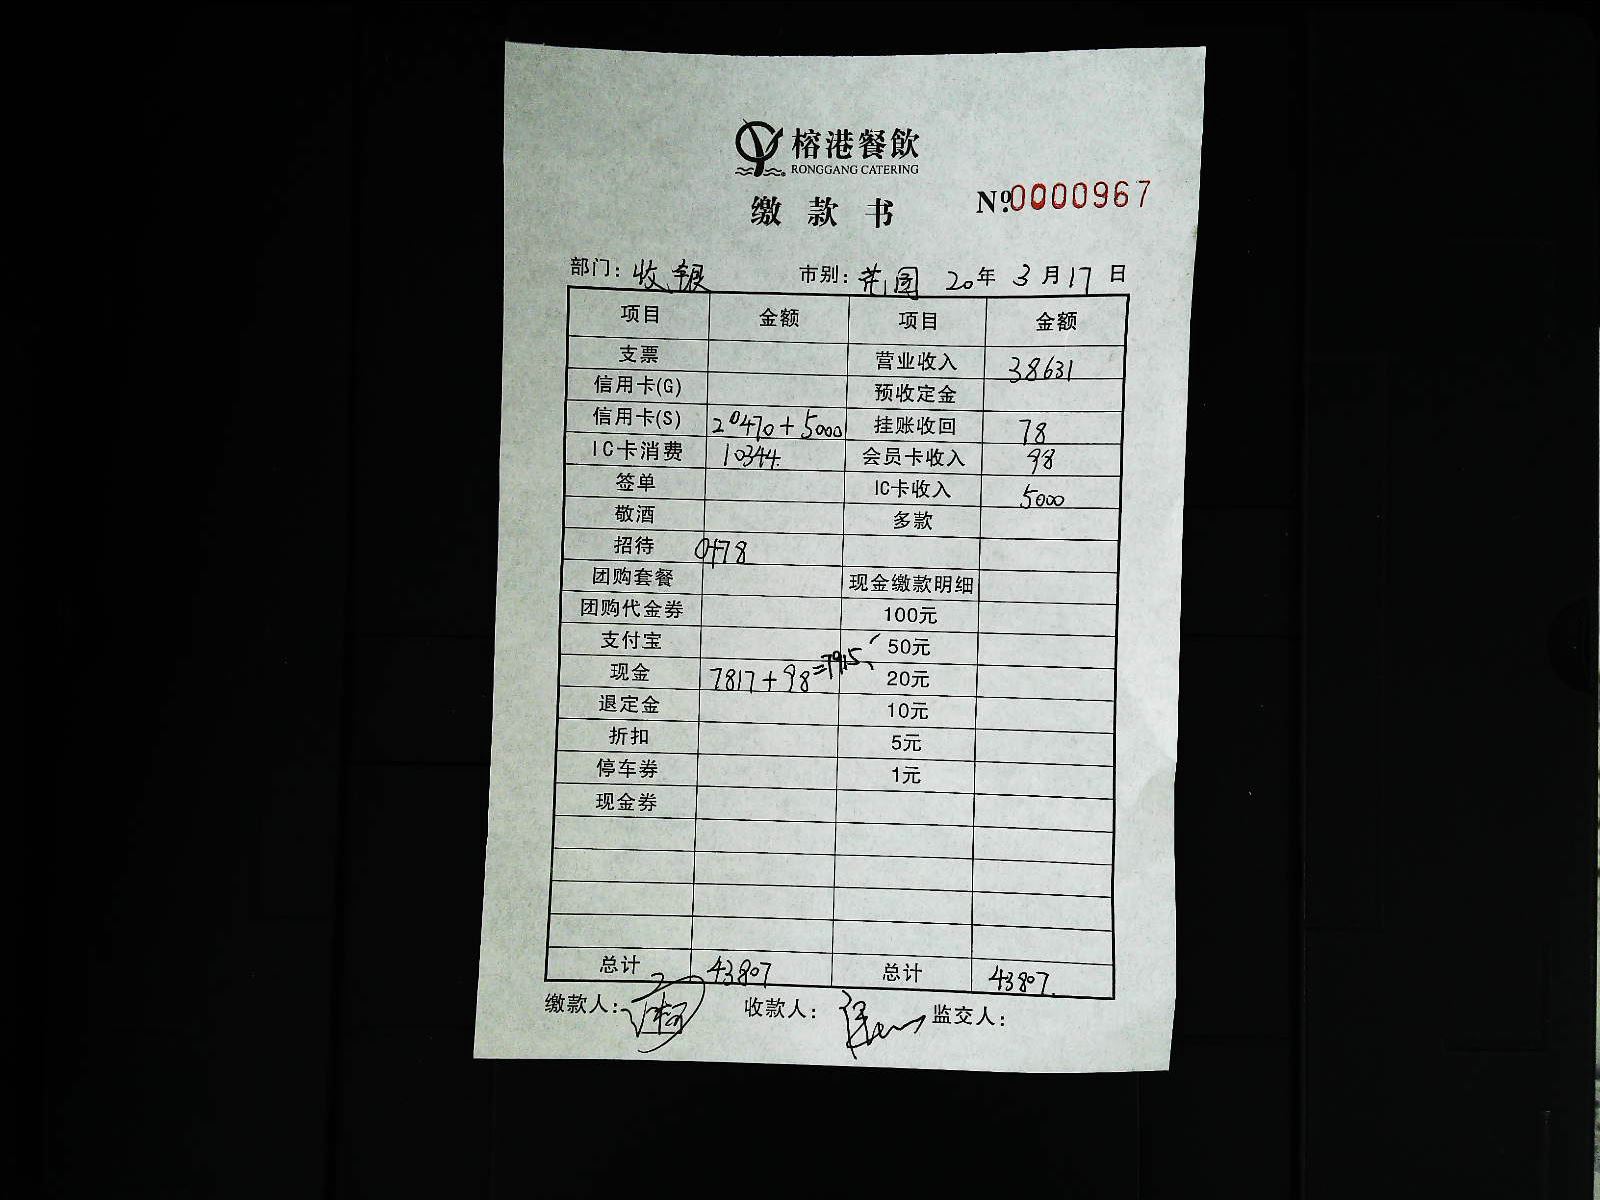 榕港餐飲
RONGGANG CATERING
缴款书 №0000967
部门：收银 市别： 20年3月17日
项目 金额 项目 金额
支票 营业收入 38631
信用卡(G) 预收定金
信用卡(S) 20470+5000 挂账收回 78
IC卡消费 10344 会员卡收入 98
签单 IC卡收入 5000
敬酒 多款
招待 0+78
团购套餐 现金缴款明细
团购代金券 100元
支付宝 50元
现金 7817+98=7915 20元
退定金 10元
折扣 5元
停车券 1元
现金券
总计 43807 总计 43807
缴款人： 收款人： 监交人：